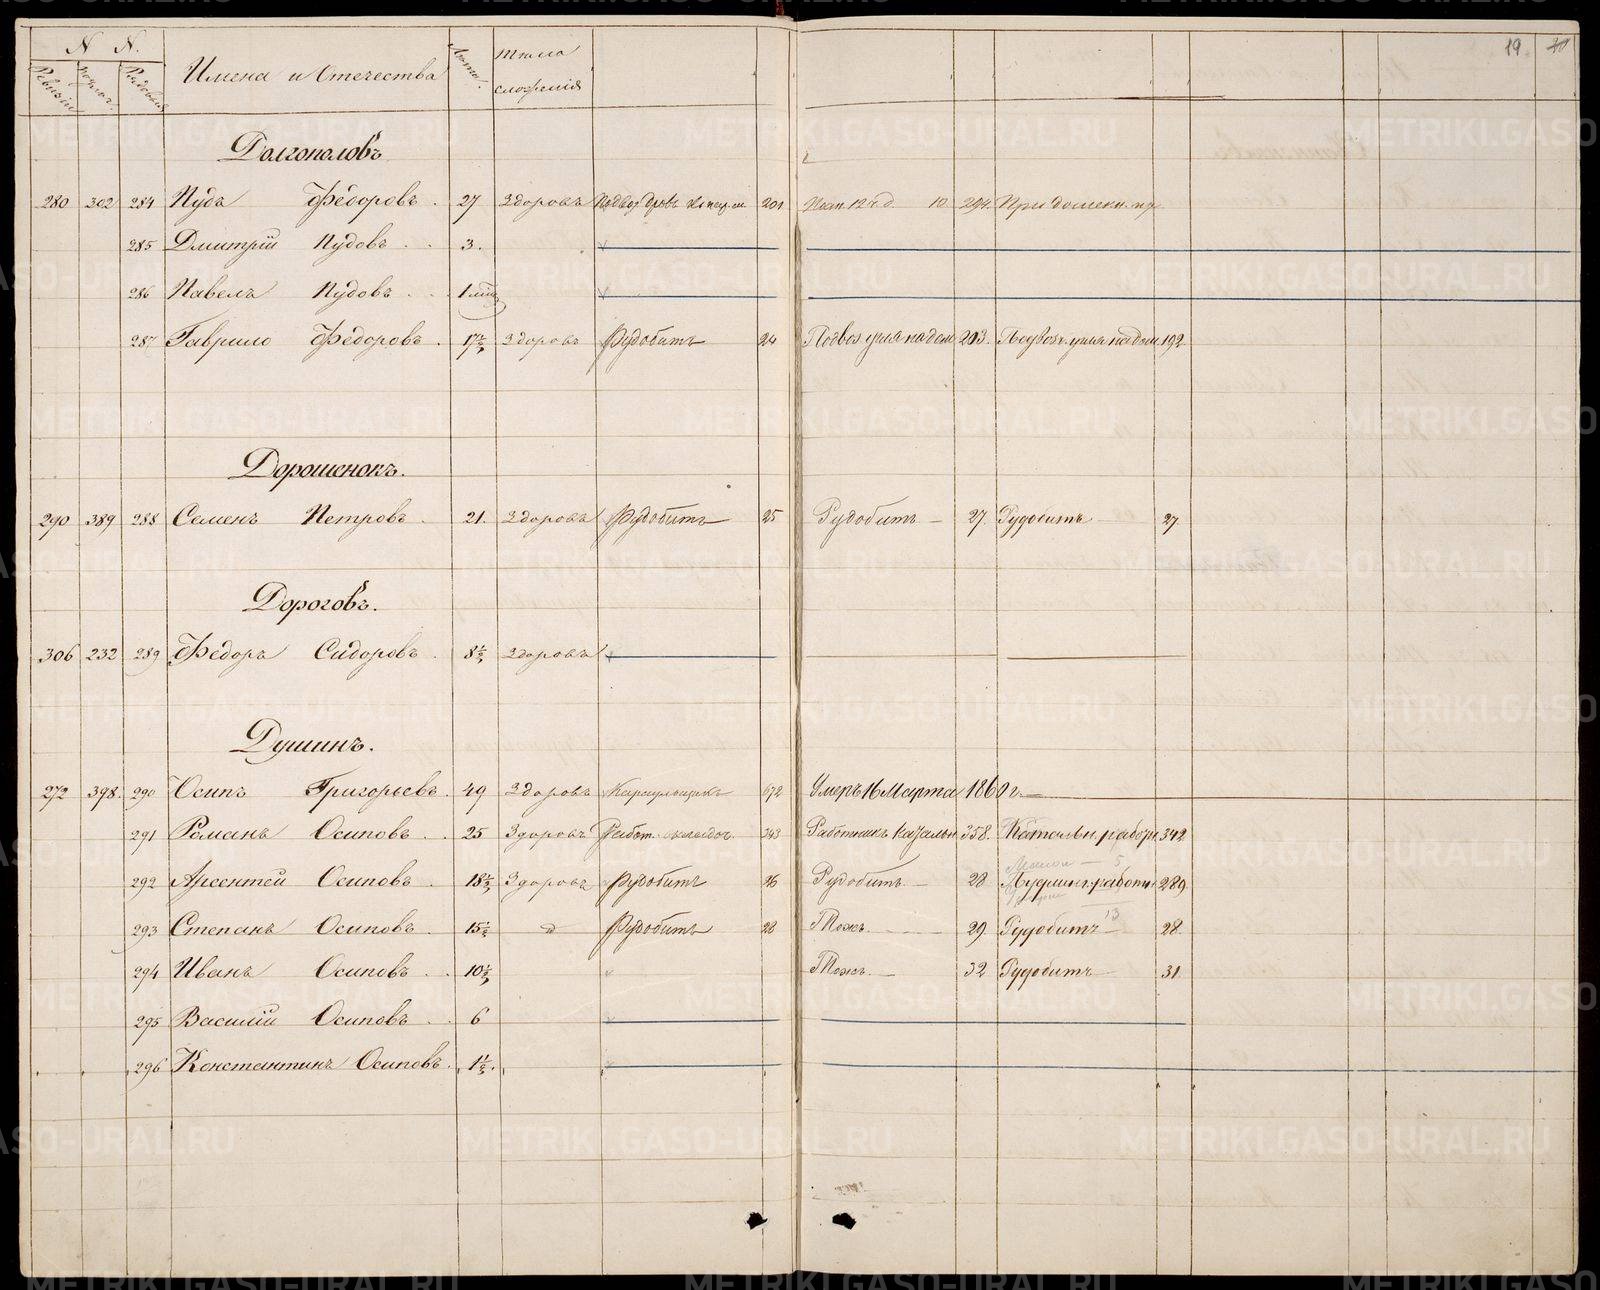 19 20
N N. Имена и Отечества Лѣта Тѣло
Ревизск. подымн. Рядовыя сложенія
Долгополовъ
280 302 284 Пудъ Федоровъ. 27 Здоровъ 201 10 294. При домен.
285 Дмитрій Пудовъ 3.
286 Павелъ Пудовъ 1 мѣс
287 Гаврило Федоровъ. 17½ Здоровъ Рудобитъ 24 Подвоз угля на дом 203. Подвозч. угля на дом. 192
Дорошенокъ.
290 389 288 Семенъ Петровъ. 21. Здоровъ Рудобитъ 25 Рудобитъ 27. Рудобитъ 27
Дороговъ.
306 232 289 Федоръ Сидоровъ. 8½ Здоровъ
Душинъ.
272 398. 290 Осипъ Григорьевъ. 49 Здоровъ Караульщикъ 672 Умеръ 16 Марта 1860 г.
291 Романъ Осиповъ. 25 Здоровъ Работ. 343 Работникъ 358. рабочи 342
292 Арсентей Осиповъ. 18½ Здоровъ Рудобитъ 26 Рудобитъ 28 289
293 Степанъ Осиповъ. 15½ Рудобитъ 28 Тожъ 29 Рудобитъ 13 28.
294 Иванъ Осиповъ. 10½ Тожъ 32 Рудобитъ 31
295 Василій Осиповъ. 6
296 Константинъ Осиповъ. 1½.
METRIKI.GASO-URAL.RU